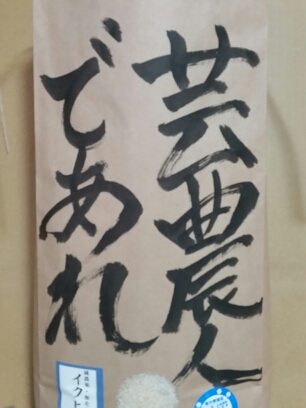 芸農人
であれ
イクヒ